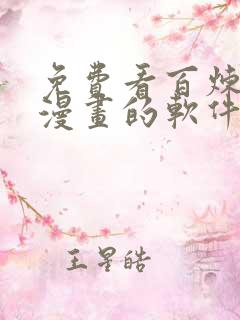 免費看百煉
漫畫的軟件
王星皓